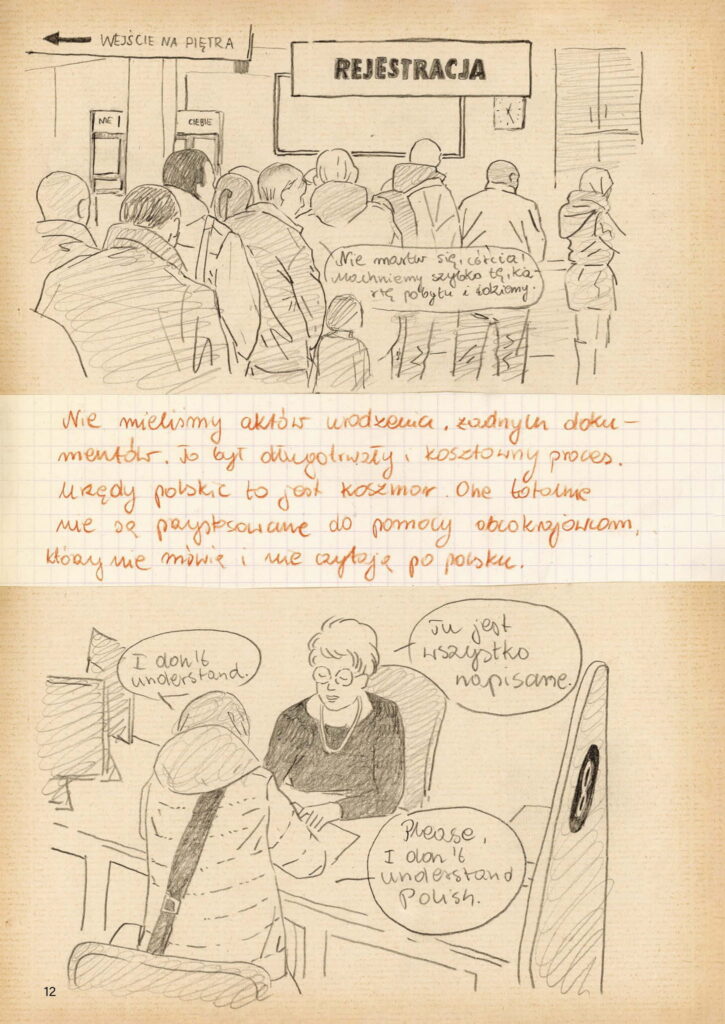 WEJŚCIE NA PIĘTRA
REJESTRACJA
NIE
CIEBIE
Nie martw się, córcia!
Machniemy szybko tę ka-
rtę pobytu i idziemy.
Nie mieliśmy aktów urodzenia, żadnych doku-
mentów. To był długotrwały i kosztowny proces.
Urzędy polskie to jest koszmar. One totalnie
nie są przystosowane do pomocy obcokrajowcom,
którzy nie mówią i nie czytają po polsku.
I don't
understand.
Tu jest
wszystko
napisane.
Please,
I don't
understand
Polish.
8
12